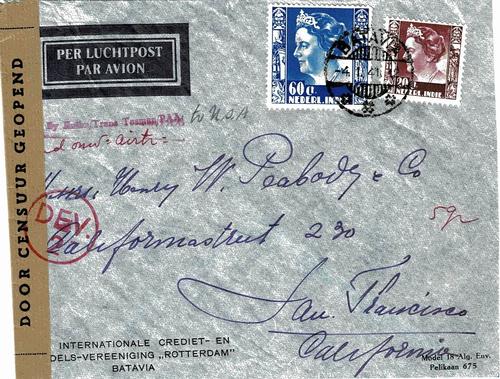 DOOR CENSUUR GEOPEND
PER LUCHTPOST
PAR AVION
60 ct
NEDERL. INDIE
BATAVIA
20
NEDERL. INDIE
By Knilm/Trans Tasman/PAA to U.S.A
Henry W. Peabody & Co
DEV.
Californiastreet 230
5gr
San Francisco
California
INTERNATIONALE CREDIET- EN
DELS-VEREENIGING „ROTTERDAM"
BATAVIA
Model 18 Alg. Env.
Pelikaan 675